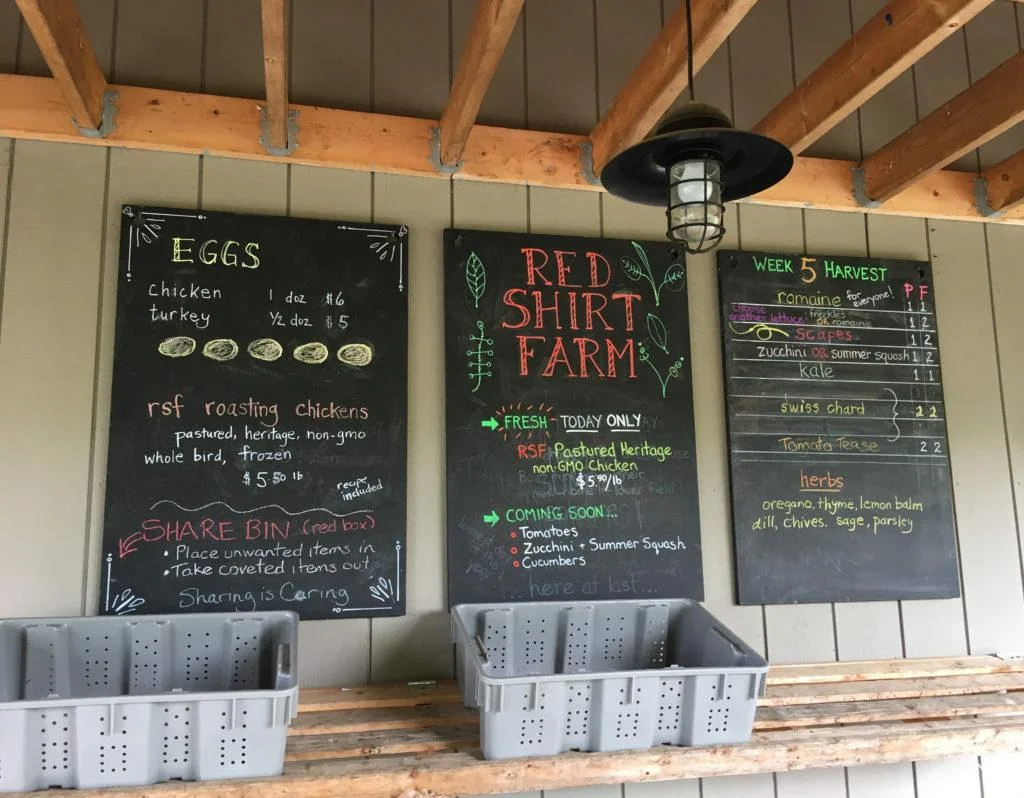 EGGS
chicken 1 doz $6
turkey ½ doz $5
rsf roasting chickens
pastured, heritage, non-gmo
whole bird, frozen
$5 50 lb
recipe
included
SHARE BIN (red box)
• Place unwanted items in
• Take coveted items out
Sharing is Caring
RED
SHIRT
FARM
FRESH TODAY ONLY
RSF Pastured Heritage
non-GMO Chicken
$5.90/lb
COMING SOON...
Tomatoes
Zucchini + Summer Squash
Cucumbers
... here at last...
WEEK 5 HARVEST
P F
romaine for everyone! 1 1
choose another lettuce: freckles OR romaine 1 2
scapes 1 2
zucchini OR summer squash 1 2
kale 1 1
swiss chard 2 2
Tomato Tease 2 2
herbs
oregano, thyme, lemon balm
dill, chives, sage, parsley